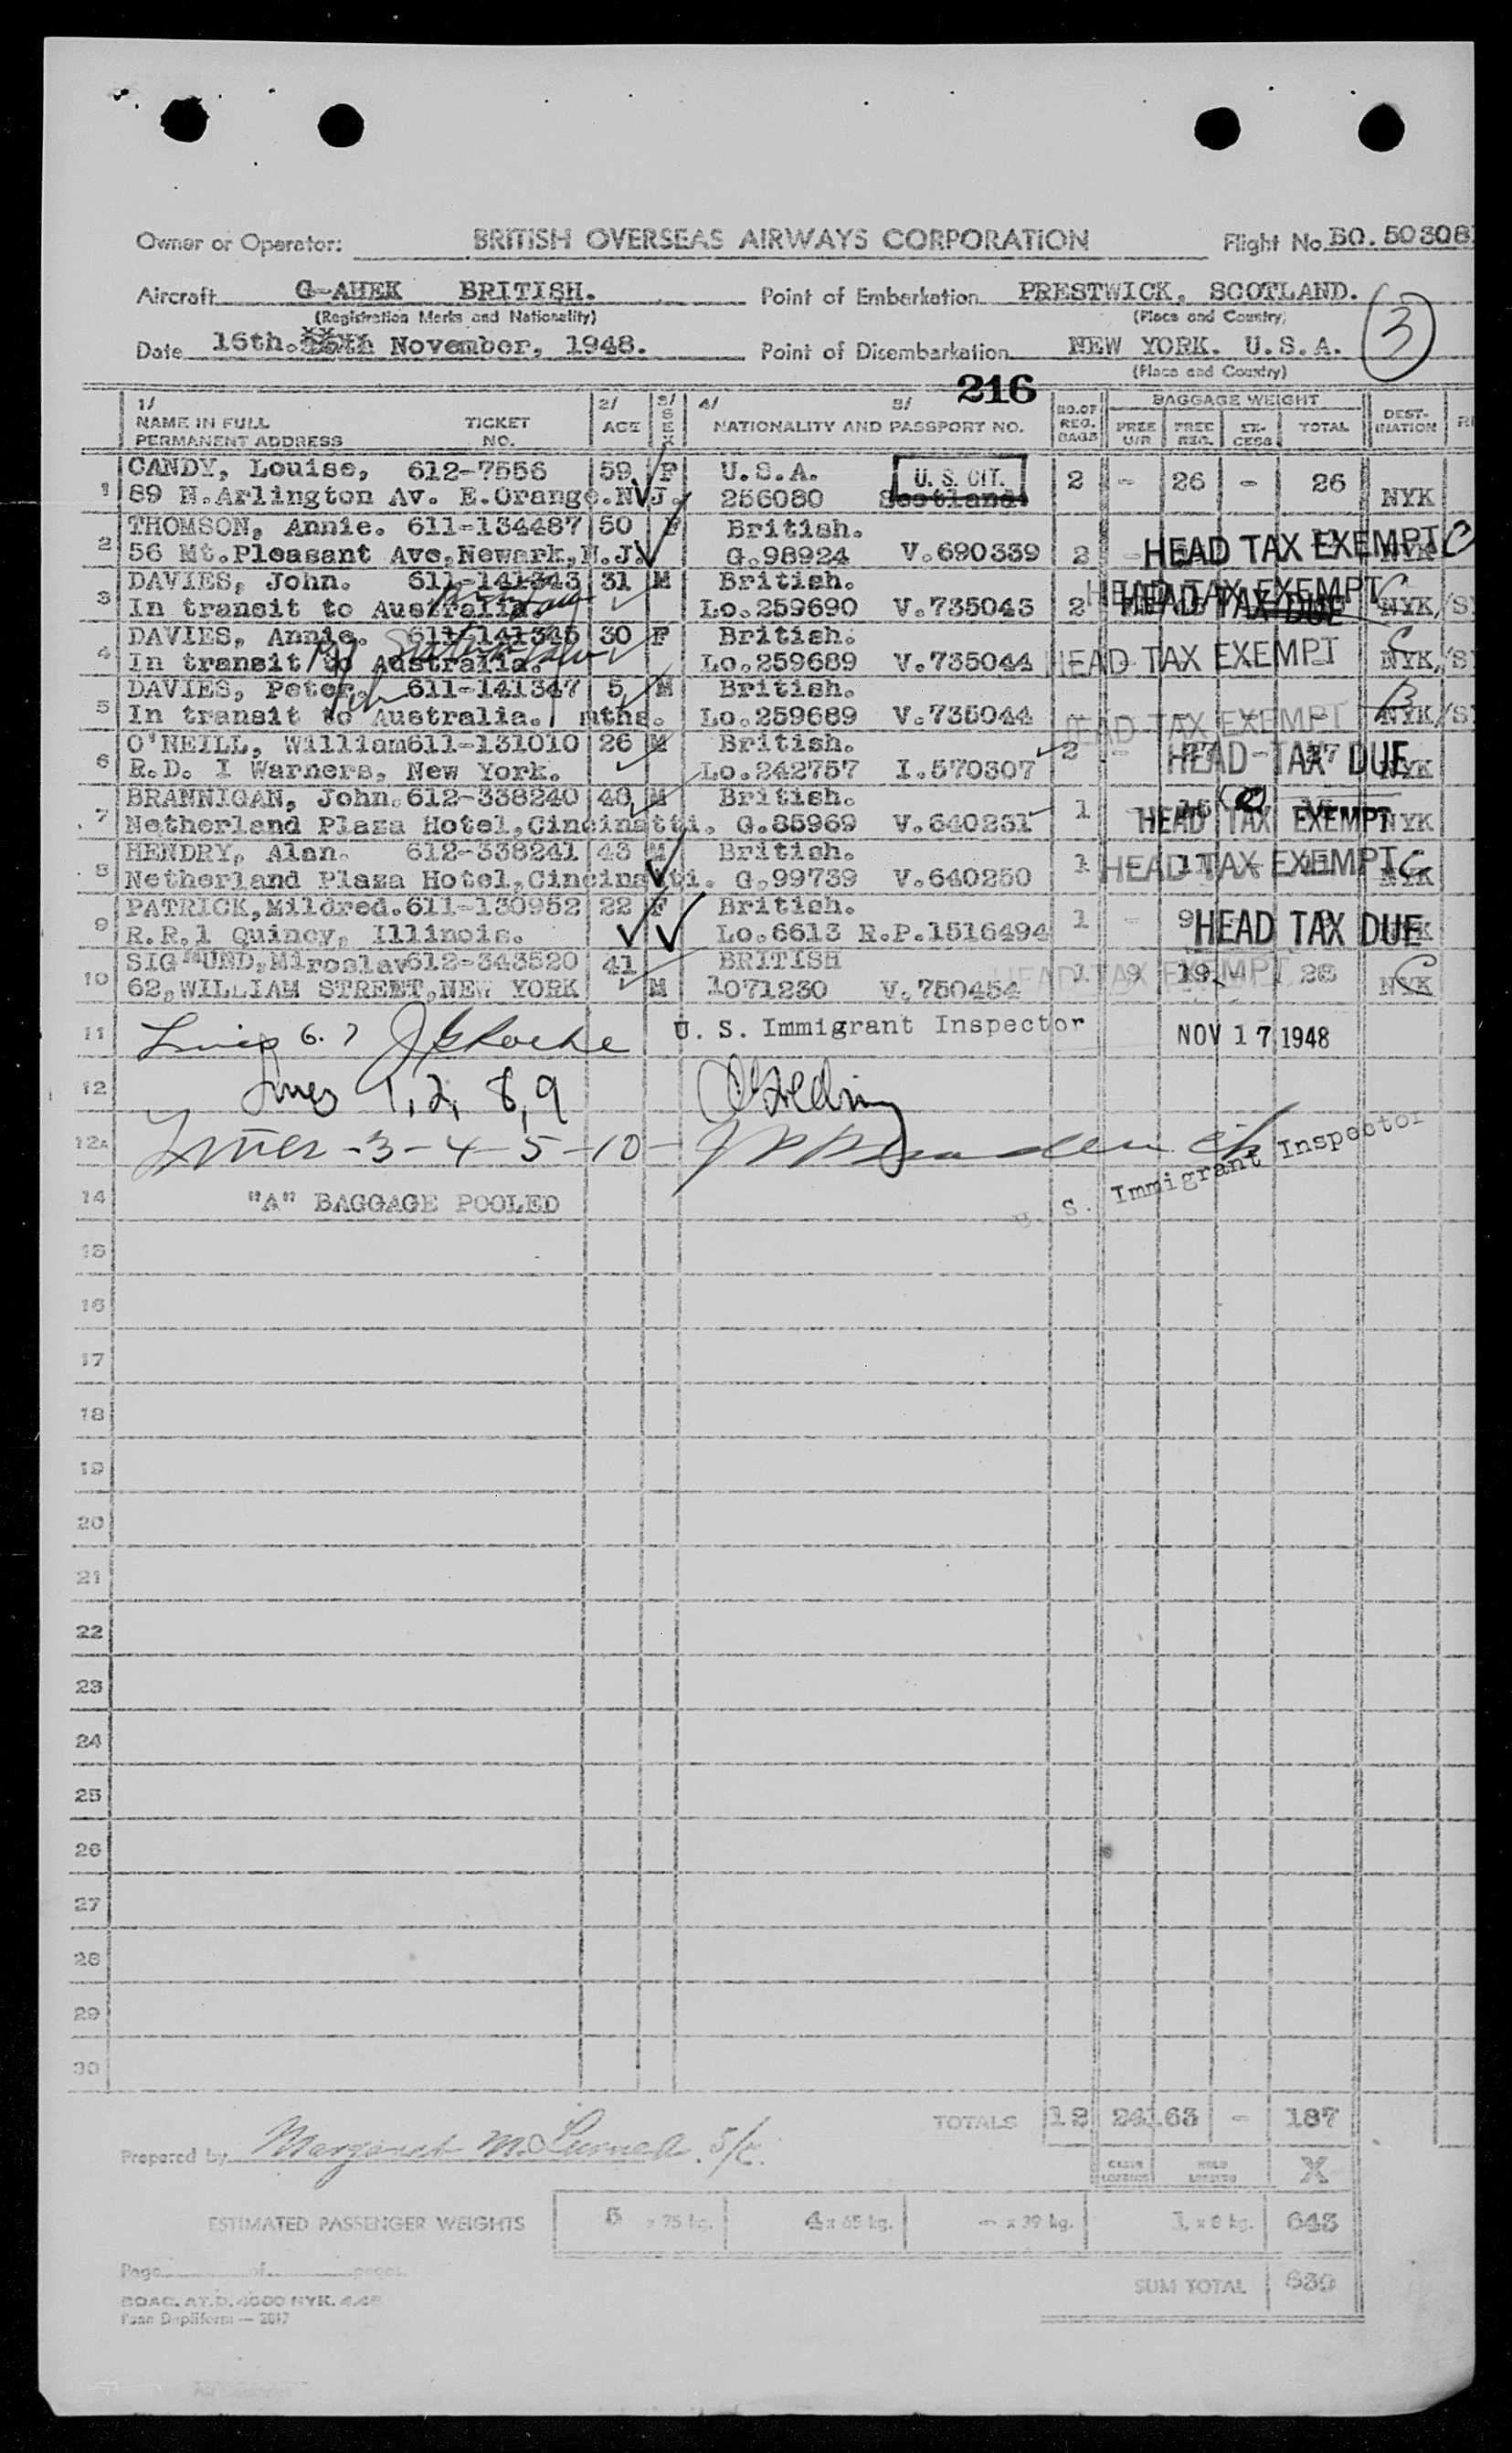 Owner or Operator: BRITISH OVERSEAS AIRWAYS CORPORATION Flight No. BO. 50308
Aircraft G-AHEK BRITISH. Point of Embarkation PRESTWICK, SCOTLAND.
(Registration Marks and Nationality) (Place and Country)
3
Date 16th. November, 1948. Point of Disembarkation NEW YORK. U.S.A.
(Place and Country)
216
1/ 2/ 3/ 4/ 5/ NO.OF REG. BAGS BAGGAGE WEIGHT DEST-INATION
NAME IN FULL TICKET AGE SEX NATIONALITY AND PASSPORT NO. FREE U/R FREE REG. EX-CESS TOTAL
PERMANENT ADDRESS NO.
1 CANDY, Louise, 612-7556 59 F U.S.A. U. S. CIT. 2 - 26 - 26
89 N.Arlington Av. E.Orange.N.J. 256080 Scotland. NYK
2 THOMSON, Annie. 611-134487 50 F British.
56 Mt.Pleasant Ave,Newark,N.J. G.98924 V.690339 2 HEAD TAX EXEMPT NYK C
3 DAVIES, John. 611-141343 31 M British. HEAD TAX EXEMPT C
In transit to Australia. Lo.259690 V.735043 2 HEAD TAX DUE NYK/S
4 DAVIES, Annie. 611-141345 30 F British.
In transit to Australia. Lo.259689 V.735044 HEAD TAX EXEMPT C NYK/S
5 DAVIES, Peter. 611-141347 5 M British.
In transit to Australia. mths. Lo.259689 V.735044 HEAD TAX EXEMPT B NYK/S
6 O'NEILL, William 611-131010 26 M British.
R.D. I Warners, New York. Lo.242757 I.570307 2 - 27 - 27 HEAD TAX DUE NYK
7 BRANNIGAN, John. 612-338240 48 M British.
Netherland Plaza Hotel,Cincinatti. G.85969 V.640251 1 HEAD TAX EXEMPT NYK
8 HENDRY, Alan. 612-338241 43 M British.
Netherland Plaza Hotel,Cincinatti. G.99739 V.640250 1 HEAD TAX EXEMPT C NYK
9 PATRICK, Mildred. 611-130952 22 F British.
R.R.1 Quincy, Illinois. Lo.6613 R.P.1516494 1 - 9 HEAD TAX DUE
10 SIGMUND, Miroslav 612-343520 41 BRITISH
62, WILLIAM STREET, NEW YORK M 1071230 V.750454 HEAD TAX EXEMPT 1 9 19 - 28 NYK C
11 Lines 6. 7 J G Roche U. S. Immigrant Inspector NOV 17 1948
12 Lines 1, 2, 8, 9
12A Lines -3-4-5-10- U. S. Immigrant Inspector
14 "A" BAGGAGE POOLED
15
16
17
18
19
20
21
22
23
24
25
26
27
28
29
30
TOTALS 12 24 163 - 187
Prepared by Margaret
CABIN LOADING HOLD LOADING X
ESTIMATED PASSENGER WEIGHTS 5 x 75 kg. 4 x 65 kg. - x 39 kg. 1 x 8 kg. 643
Page of pages.
SUM TOTAL 830
BOAC. AT.D. 4000 NYK. 4.48